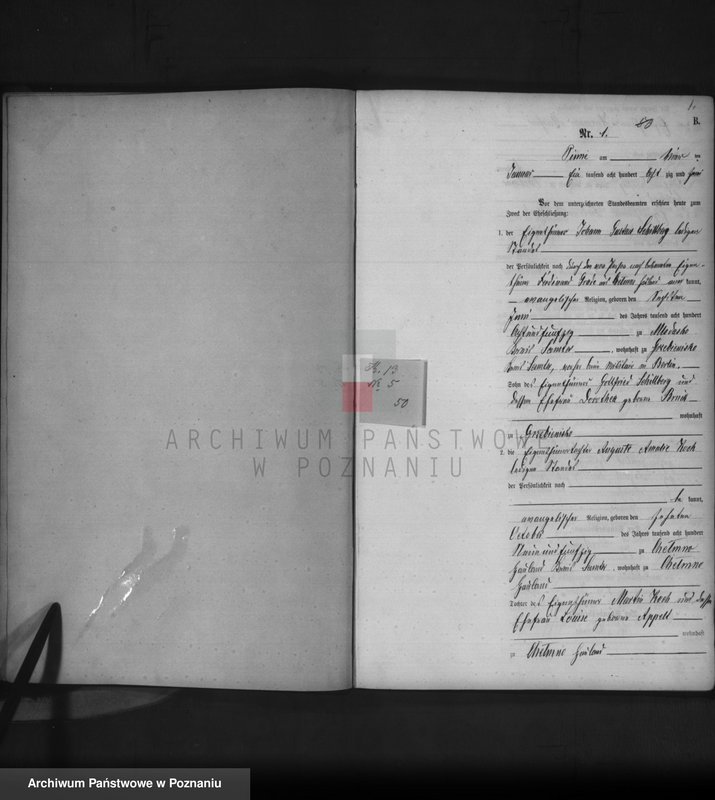 1.
80
B.
Nr. 1.
Pinne am
Januar Ein tausend acht hundert Acht zig und
Vor dem unterzeichneten Standesbeamten erschien heute zum
Zweck der Eheschließung:
1. der Eigenthümer Johann Gustav Schillberg ledigen
Standes
der Persönlichkeit nach durch den
Ferdinand kannt,
evangelischer Religion, geboren den
Juni des Jahres tausend acht hundert
Achtundfünfzig zu
Kreis Samter, wohnhaft zu Grzebienisko
Kreis Samter, in Berlin.
Sohn des Eigenthümers Gottfried Schillberg und
dessen Ehefrau Dorothea geborne
wohnhaft
zu Grzebienisko
2. die Eigenthümertochter Auguste Amalie Koch
ledigen Standes
der Persönlichkeit nach
be kannt,
evangelischer Religion, geboren den zehnten
October des Jahres tausend acht hundert
Neunundfünfzig zu Chelmno
Hauland Kreis Samter, wohnhaft zu Chelmno
Hauland
Tochter des Eigenthümers Martin Koch und dessen
Ehefrau Louise geborne Appelt
wohnhaft
zu Chelmno Hauland
K. 13
Nr 5
50
ARCHIWUM PAŃSTWOWE
W POZNANIU
Archiwum Państwowe w Poznaniu